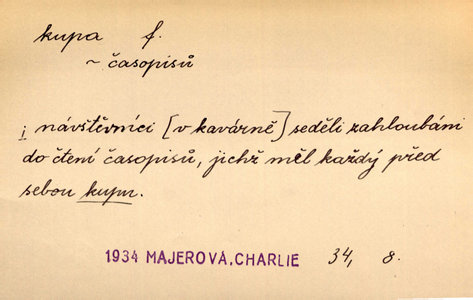 kupa f.
~ časopisů
i návštěvníci [v kavárně] seděli zahloubáni
do čtení časopisů, jichž měl každý před
sebou kupu.
1934 MAJEROVÁ, CHARLIE 34, 8.